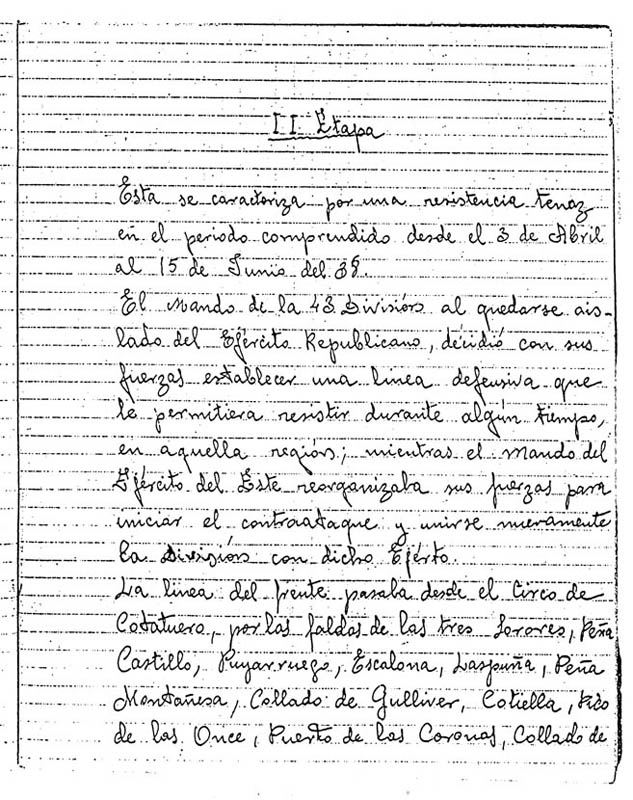 II Etapa
Esta se caracteriza por una resistencia tenaz
en el periodo comprendido desde el 3 de Abril
al 15 de Junio del 38.
El Mando de la 43 División al quedarse ais-
lado del Ejército Republicano, decidió con sus
fuerzas establecer una linea defensiva que
le permitiera resistir durante algún tiempo,
en aquella región; mientras el Mando del
Ejército del Este reorganizaba sus fuerzas para
iniciar el contraataque y unirse nuevamente
la División con dicho Ejérto.
La linea del frente pasaba desde el Circo de
Cotatuero, por las faldas de las tres Sorores, Peña
Castillo, Puyarruego, Escalona, Laspuña, Peña
Montañesa, Collado de Gulliver, Cotiella, Pico
de las Once, Puerto de las Coronas, Collado de